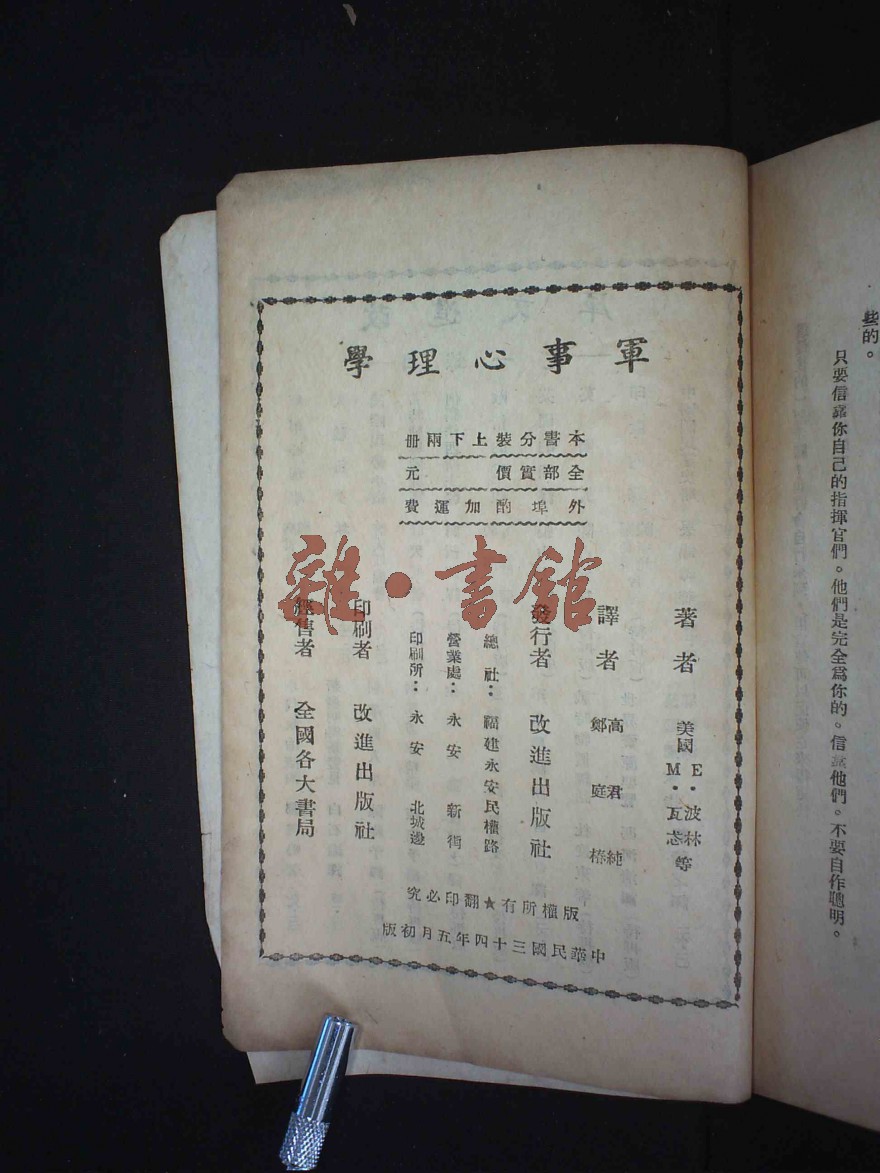 些的。
只要信靠你自己的指揮官們。他們是完全爲你的。信靠他們。不要自作聰明。
軍事心理學
本書分裝上下兩冊
全部實價 元
外埠酌加運費
雜·書館
著者 美國 E·波林
M·瓦忒 等
譯者 高君純
鄭庭椿
發行者 改進出版社
總社：福建永安民權路
營業處：永安新街
印刷所：永安北城邊
印刷者 改進出版社
經售者 全國各大書局
版權所有★翻印必究
中華民國三十四年五月初版